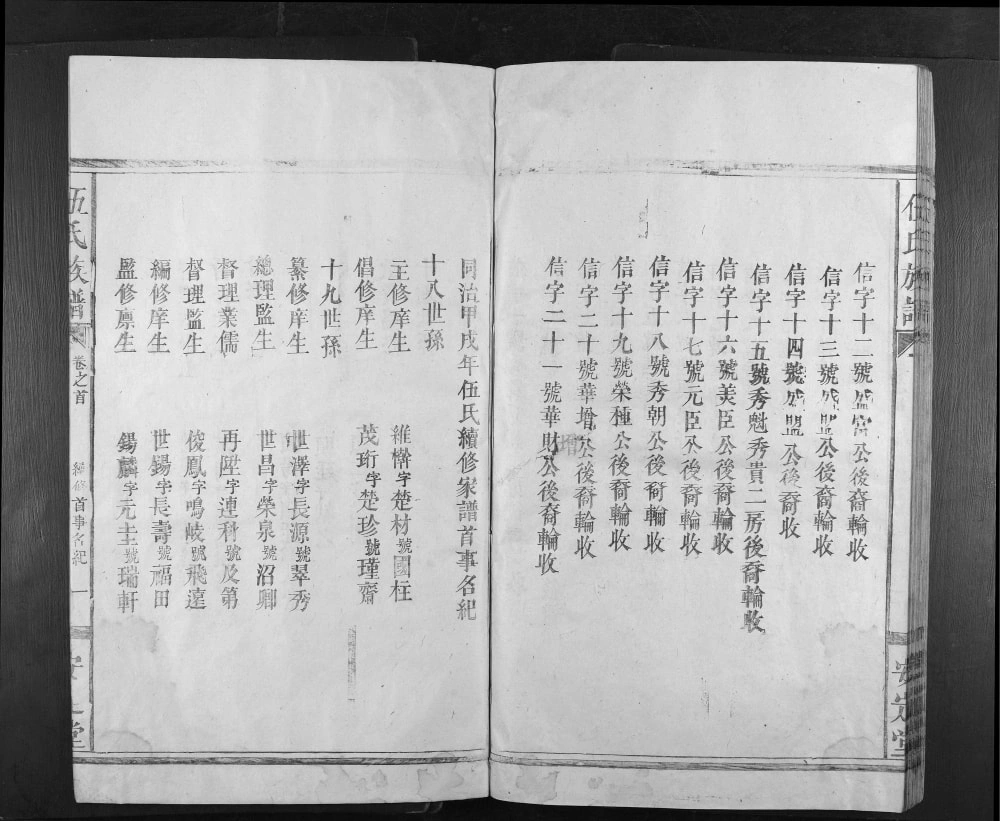 伍氏族譜
安定堂
信字十二號盛富公後裔輪收
信字十三號盛盟公後裔輪收
信字十四號盛盟公後裔收
信字十五號秀魁秀貴二房後裔輪收
信字十六號美臣公後裔輪收
信字十七號元臣公後裔輪收
信字十八號秀朝公後裔輪收
信字十九號榮極公後裔輪收
信字二十號華增公後裔輪收
增
信字二十一號華財公後裔輪收
同治甲戌年伍氏續修家譜首事名紀
十八世孫
主修庠生 維懈字楚材號國柱
倡修庠生 茂珩字楚珍號瑾齋
十九世孫
纂修庠生 世澤字長源號翠秀
總理監生 世昌字榮泉號沼卿
督理業儒 再陞字連科號及第
督理監生 俊鳳字鳴岐號飛遠
編修庠生 世錫字長壽號福田
監修廪生 錫麟字元圭號瑞軒
伍氏族譜
卷之首
經修首事名紀 一
安定堂